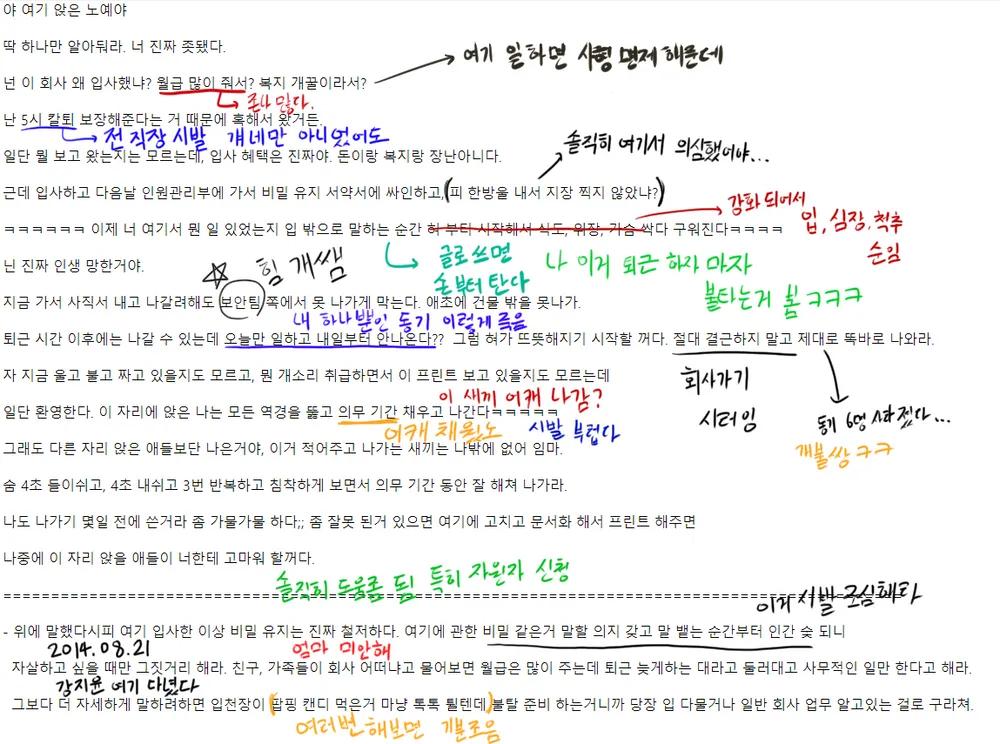 야 여기 앉은 노예야
딱 하나만 알아둬라. 너 진짜 좃됐다.
여기 일하면 사형 면제 해준데
넌 이 회사 왜 입사했냐? 월급 많이 줘서? 복지 개꿀이라서?
존나 많다.
난 5시 칼퇴 보장해준다는 거 때문에 혹해서 왔거든.
전 직장 시발 걔네만 아니었어도
솔직히 여기서 의심했어야...
일단 뭘 보고 왔는지는 모르는데, 입사 혜택은 진짜야. 돈이랑 복지랑 장난아니다.
근데 입사하고 다음날 인원관리부에 가서 비밀 유지 서약서에 싸인하고,(피 한방울 내서 지장 찍지 않았냐?)
강화 되어서 입, 심장, 척추 순임
ㅋㅋㅋㅋㅋㅋ 이제 너 여기서 뭔 일 있었는지 입 밖으로 말하는 순간 혀 부터 시작해서 식도, 위장, 가슴 싹다 구워진다ㅋㅋㅋㅋ
글로 쓰면 손부터 탄다
나 이거 퇴근 하자 마자 불타는거 봄 ㅋㅋㅋ
닌 진짜 인생 망한거야.
☆ 힘 개쌤
지금 가서 사직서 내고 나갈려해도 보안팀 쪽에서 못 나가게 막는다. 애초에 건물 밖을 못나가.
내 하나뿐인 동기 이렇게 죽음
퇴근 시간 이후에는 나갈 수 있는데 오늘만 일하고 내일부터 안나온다?? 그럼 혀가 뜨뜻해지기 시작할 꺼다. 절대 결근하지 말고 제대로 똑바로 나와라.
회사가기 시러임
동기 6명 사라졌다...
개불쌍 ㅋㅋ
자 지금 울고 불고 짜고 있을지도 모르고, 뭔 개소리 취급하면서 이 프린트 보고 있을지도 모르는데
이 새끼 어캐 나감?
일단 환영한다. 이 자리에 앉은 나는 모든 역경을 뚫고 의무 기간 채우고 나간다ㅋㅋㅋㅋㅋ
어캐 채웠노
시발 부럽다
그래도 다른 자리 앉은 애들보단 나은거야, 이거 적어주고 나가는 새끼는 나밖에 없어 임마.
숨 4초 들이쉬고, 4초 내쉬고 3번 반복하고 침착하게 보면서 의무 기간 동안 잘 해쳐 나가라.
나도 나가기 몇일 전에 쓴거라 좀 가물가물 하다;; 좀 잘못 된거 있으면 여기에 고치고 문서화 해서 프린트 해주면
나중에 이 자리 앉을 애들이 너한테 고마워 할꺼다.
솔직히 도움좀 됨 특히 자원자 신청
이거 시발 조심해라
- 위에 말했다시피 여기 입사한 이상 비밀 유지는 진짜 철저하다. 여기에 관한 비밀 같은거 말할 의지 갖고 말 뱉는 순간부터 인간 숯 되니
2014.08.21
엄마 미안해
자살하고 싶을 때만 그짓거리 해라. 친구, 가족들이 회사 어떠냐고 물어보면 월급은 많이 주는데 퇴근 늦게하는 대라고 둘러대고 사무적인 일만 한다고 해라.
강지윤 여기 다녔다
그보다 더 자세하게 말하려하면 입천장이 (팝핑 캔디 먹은거 마냥 톡톡 튈텐데)불탈 준비 하는거니까 당장 입 다물거나 일반 회사 업무 알고있는 걸로 구라쳐.
여러번 해보면 기분조음